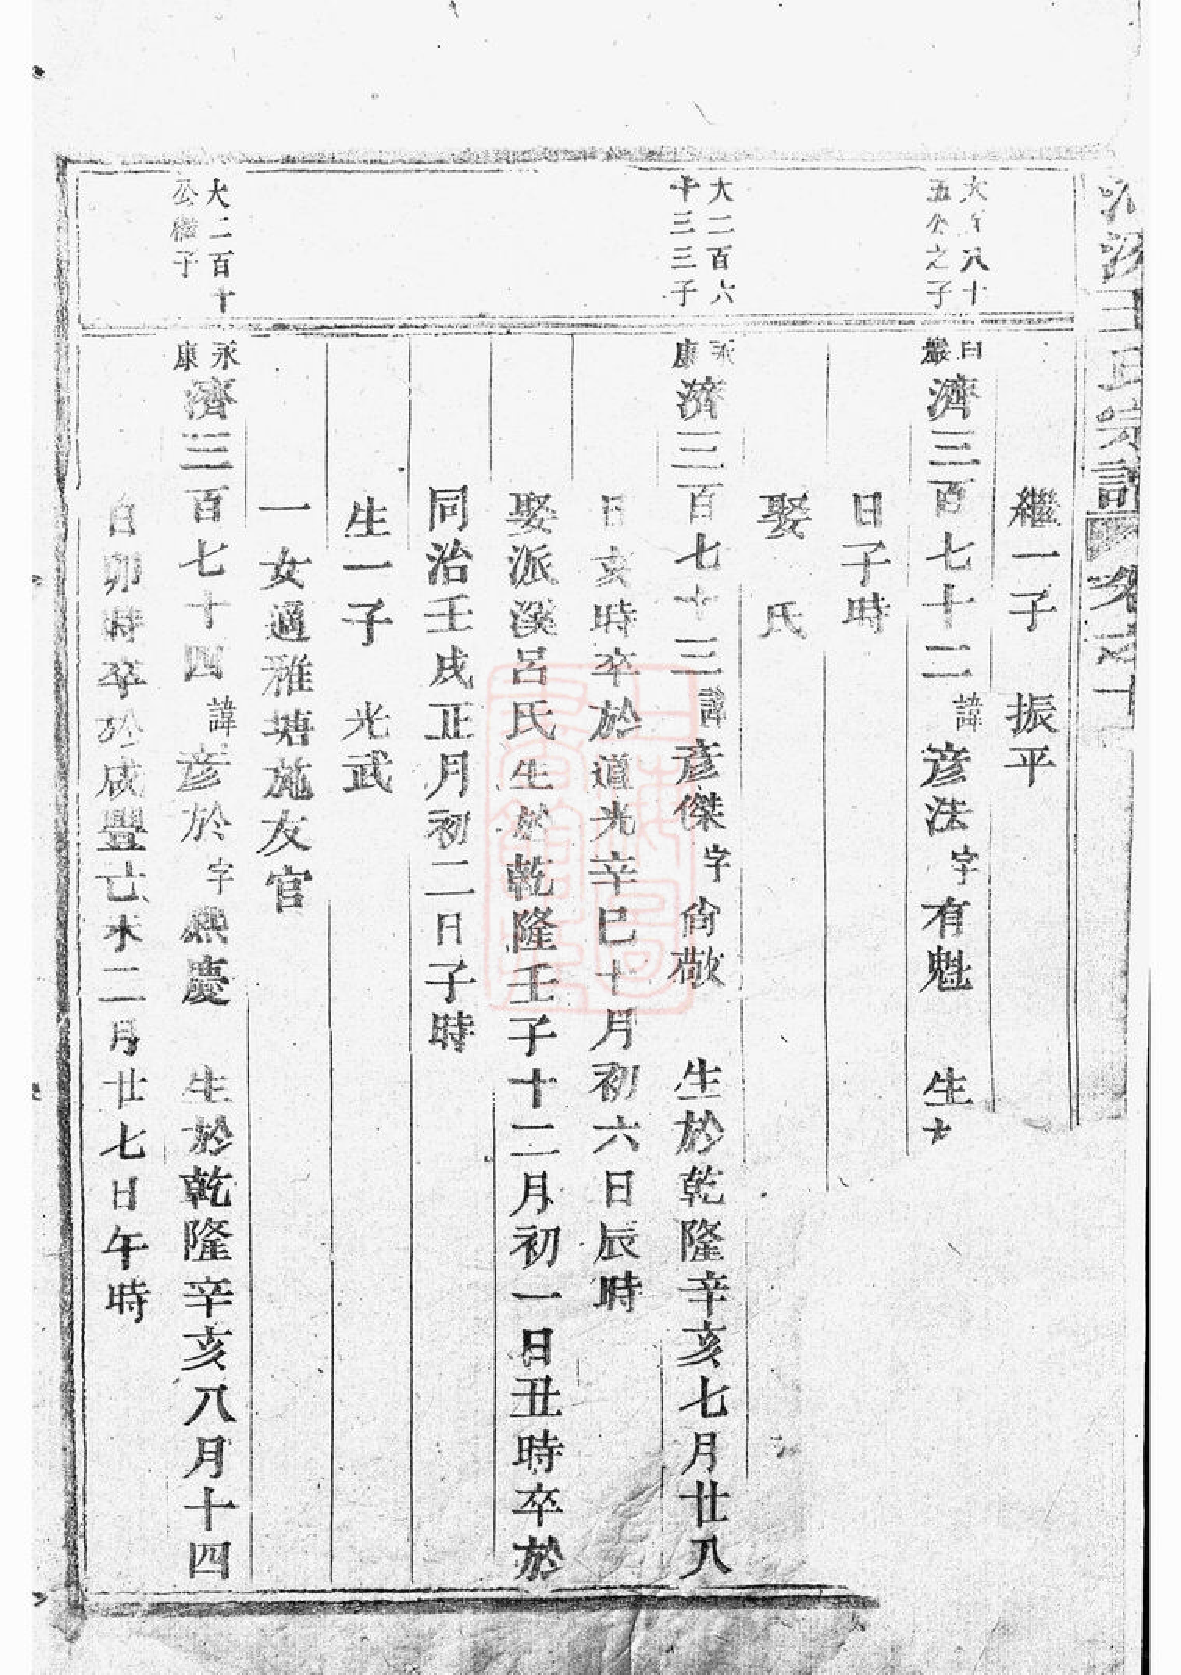 王氏宗譜 卷之十
繼一子 振平
五公之子
曰巖 濟三百七十二 諱彥法 字有魁 生
日子時
娶 氏
大二百六十三三子
永康 濟三百七十三 諱彥傑 字尙敬 生於乾隆辛亥七月廿八
日亥時卒於道光辛巳十月初六日辰時
娶派溪呂氏生於乾隆壬子十二月初一日丑時卒於
同治壬戌正月初二日子時
生一子 光武
一女適雅塘施友官
大二百十公繼子
永康 濟三百七十四 諱彥於 字燕慶 生於乾隆辛亥八月十四
日卯時卒於咸豐己未二月廿七日午時